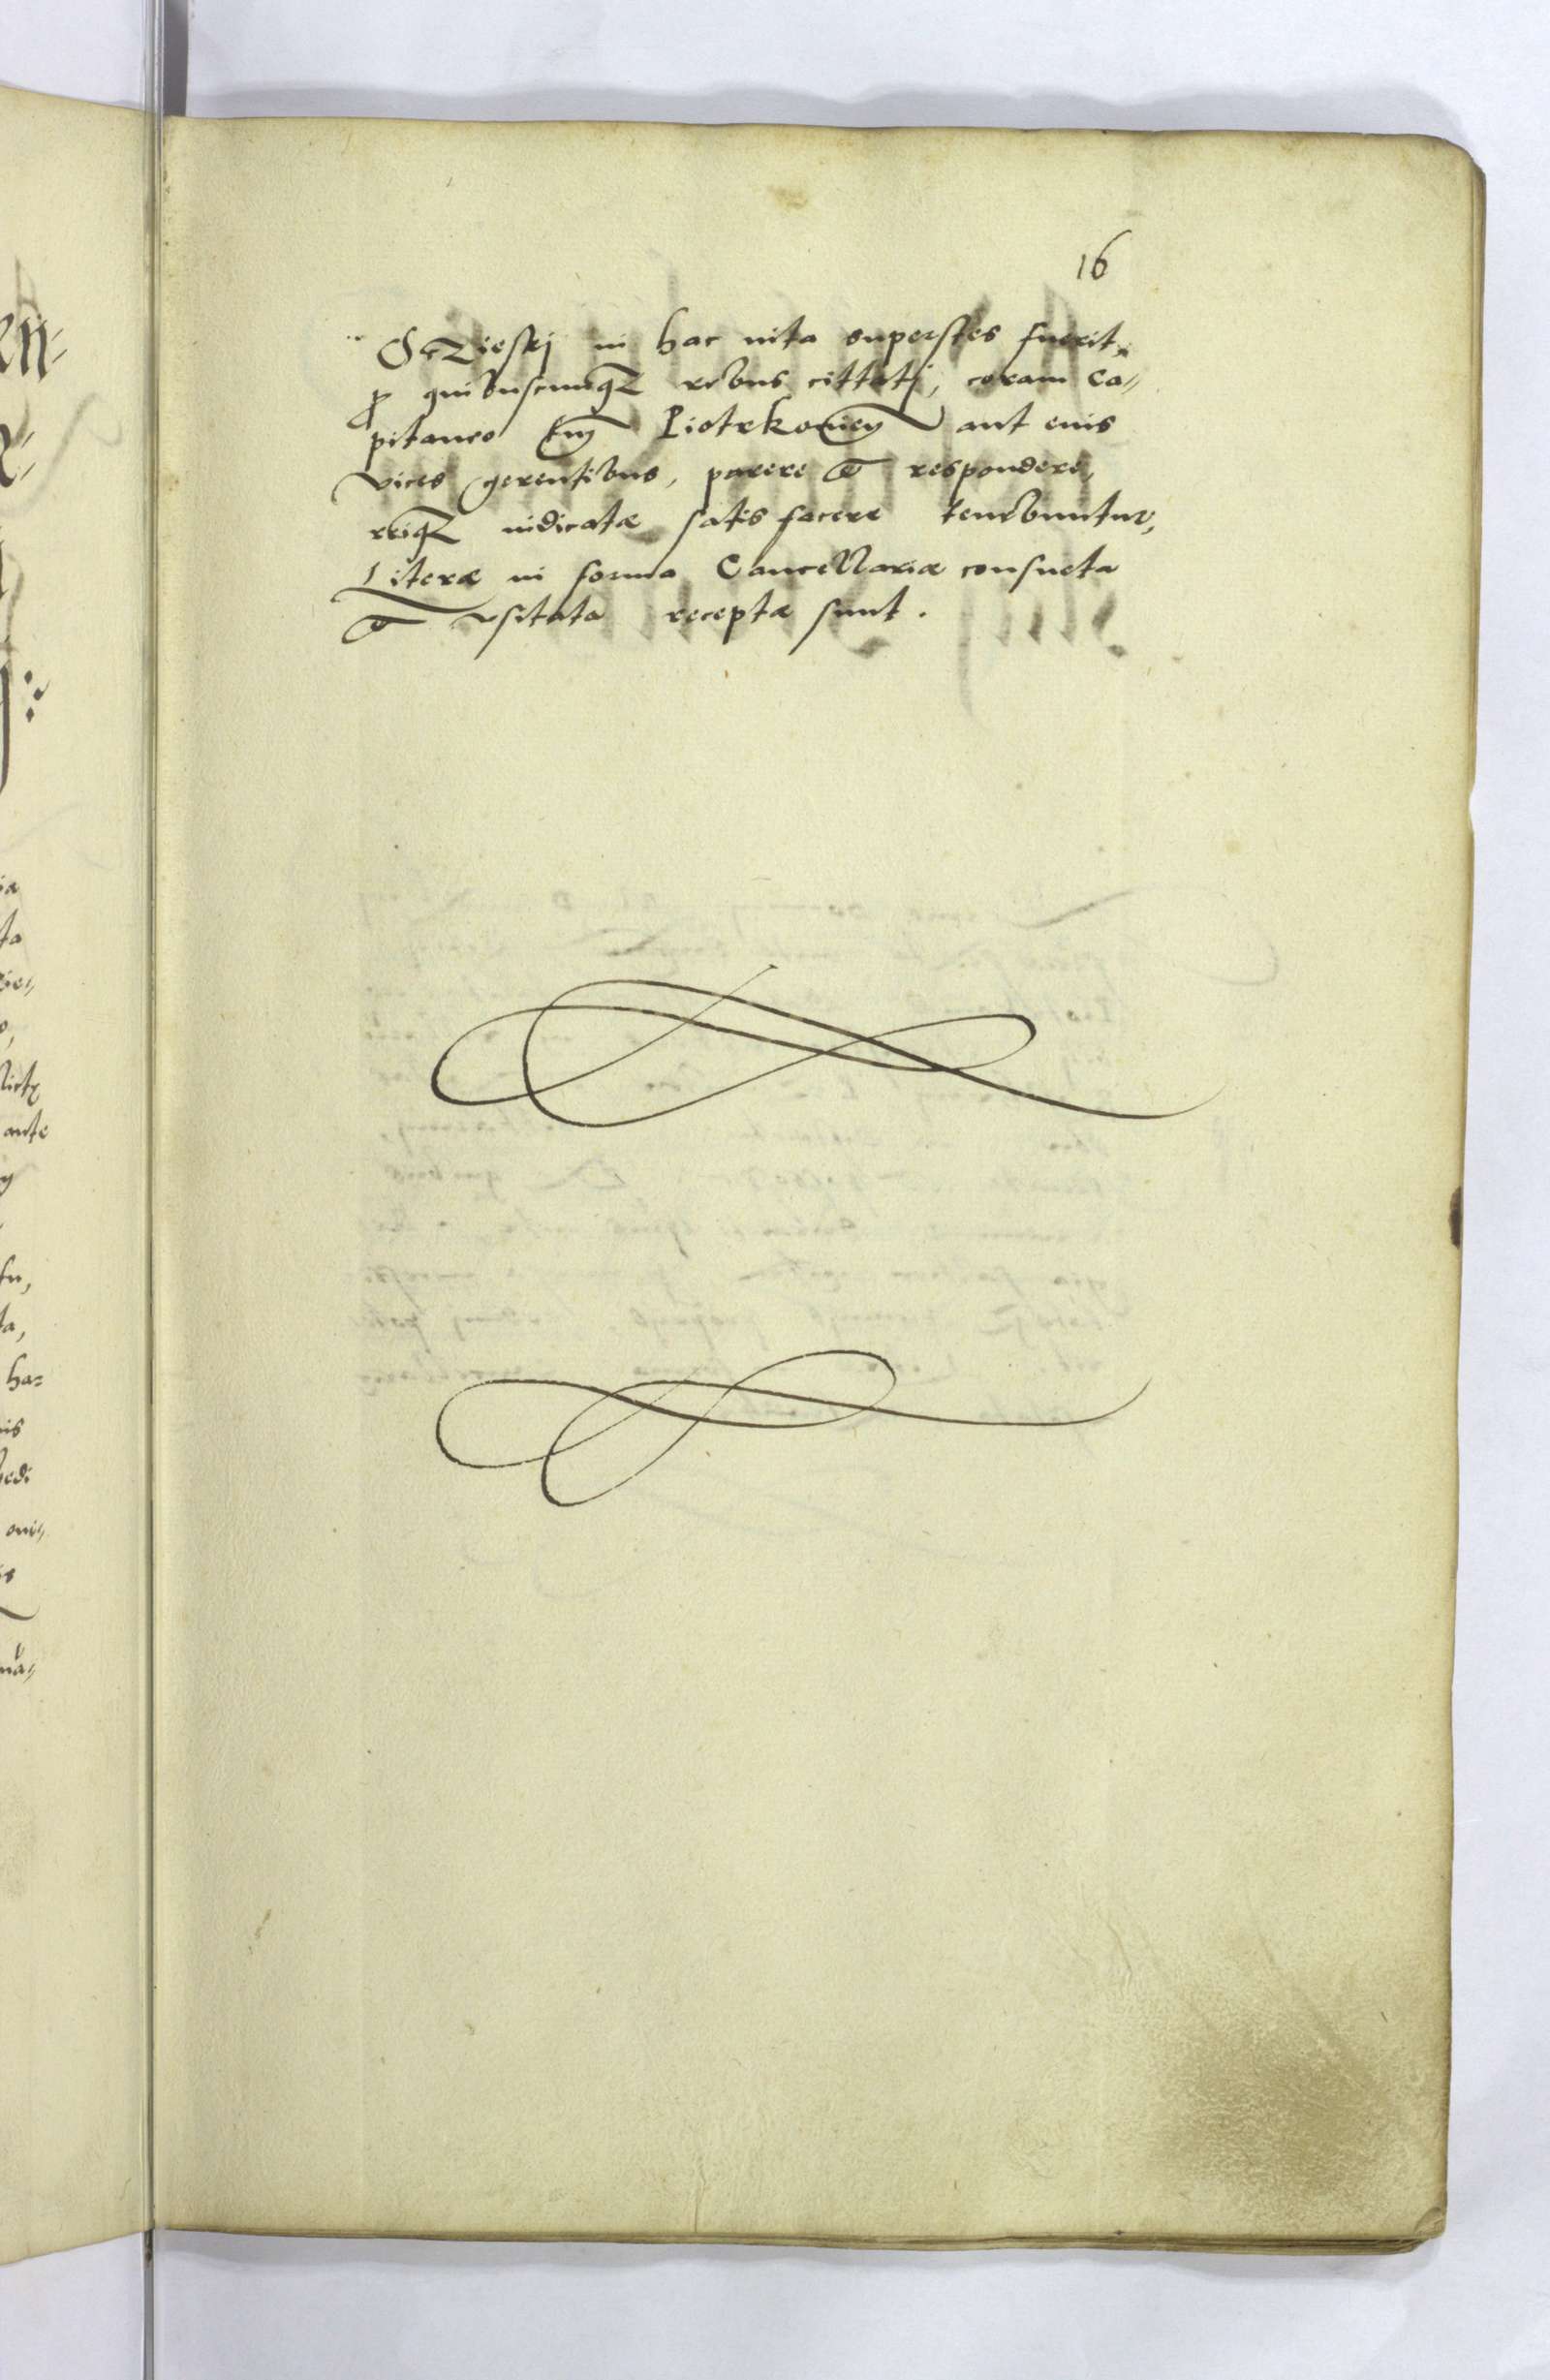 16
in hac uita superstes fuerit,
ꝓ quibuscunqꝫ rebus cittati, coram Ca„
pitaneo Piotrkouien aut eius
vices gerentibus, parere et respondere,
reiqꝫ iudicatæ satis facere tenebuntur,
Literæ in forma Cancellariæ consueta
et vsitata receptæ sunt.